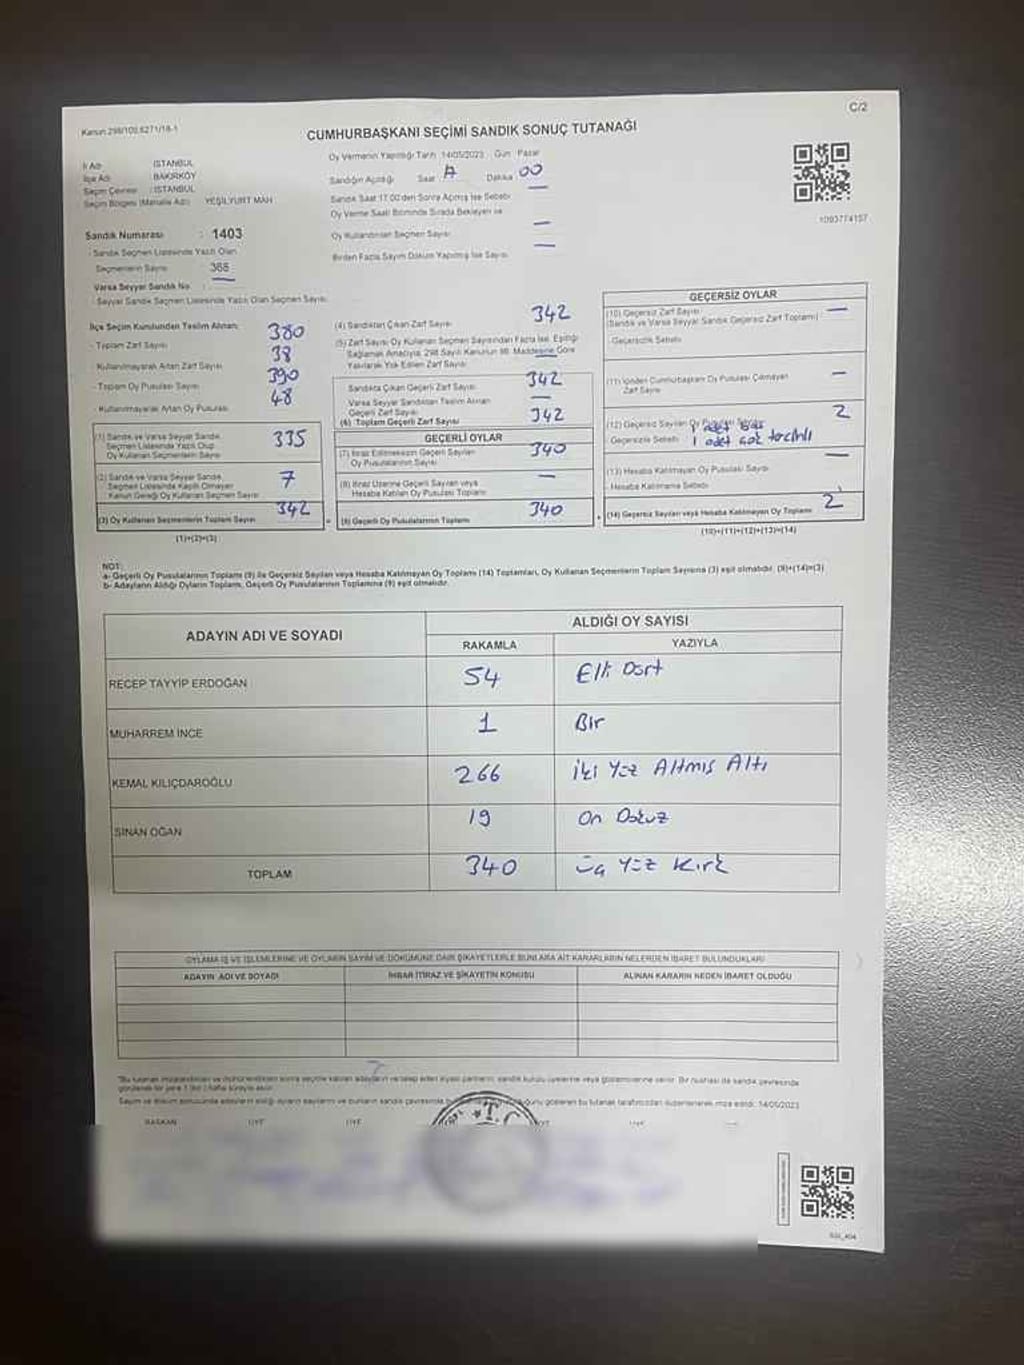 C/2
Kanun 298/100,6271/18-1
CUMHURBAŞKANI SEÇİMİ SANDIK SONUÇ TUTANAĞI
İl Adı : İSTANBUL
İlçe Adı : BAKIRKÖY
Seçim Çevresi : İSTANBUL
Seçim Bölgesi (Mahalle Adı) : YEŞİLYURT MAH
Sandık Numarası : 1403
- Sandık Seçmen Listesinde Yazılı Olan
Seçmenlerin Sayısı : 365
Varsa Seyyar Sandık No
- Seyyar Sandık Seçmen Listesinde Yazılı Olan Seçmen Sayısı
Oy Vermenin Yapıldığı Tarih: 14/05/2023 Gün: Pazar
Sandığın Açıldığı Saat Dakika 00
Sandık Saat 17:00'den Sonra Açılmış İse Sebebi —
Oy Verme Saati Bitiminde Sırada Bekleyen ve
Oy Kullandırılan Seçmen Sayısı —
Birden Fazla Sayım Döküm Yapılmış İse Sayısı —
1093774157
İlçe Seçim Kurulundan Teslim Alınan:
- Toplam Zarf Sayısı 380
- Kullanılmayarak Artan Zarf Sayısı 38
- Toplam Oy Pusulası Sayısı 390
- Kullanılmayarak Artan Oy Pusulası 48
(1) Sandık ve Varsa Seyyar Sandık
Seçmen Listesinde Yazılı Olup
Oy Kullanan Seçmenlerin Sayısı 335
(2) Sandık ve Varsa Seyyar Sandık
Seçmen Listesinde Kayıtlı Olmayan
Kanun Gereği Oy Kullanan Seçmen Sayısı 7
(3) Oy Kullanan Seçmenlerin Toplam Sayısı 342
(1)+(2)=(3)
(4) Sandıktan Çıkan Zarf Sayısı 342
(5) Zarf Sayısı Oy Kullanan Seçmen Sayısından Fazla İse, Eşitliği
Sağlamak Amacıyla, 298 Sayılı Kanunun 98. Maddesine Göre
Yakılarak Yok Edilen Zarf Sayısı —
Sandıkta Çıkan Geçerli Zarf Sayısı 342
Varsa Seyyar Sandıktan Teslim Alınan
Geçerli Zarf Sayısı —
(6) Toplam Geçerli Zarf Sayısı 342
GEÇERLİ OYLAR
(7) İtiraz Edilmeksizin Geçerli Sayılan
Oy Pusulasının Sayısı 340
(8) İtiraz Üzerine Geçerli Sayılan veya
Hesaba Katılan Oy Pusulası Toplamı —
(9) Geçerli Oy Pusulalarının Toplamı 340
GEÇERSİZ OYLAR
(10) Geçersiz Zarf Sayısı —
(Sandık ve Varsa Seyyar Sandık Geçersiz Zarf Toplamı)
- Geçersizlik Sebebi
(11) İçinden Cumhurbaşkanı Oy Pusulası Çıkmayan
Zarf Sayısı —
(12) Geçersiz Sayılan Oy Pusulası Sayısı 2
1 adet boş
Geçersizlik Sebebi 1 adet çok tercihli
(13) Hesaba Katılmayan Oy Pusulası Sayısı —
- Hesaba Katılmama Sebebi
(14) Geçersiz Sayılan veya Hesaba Katılmayan Oy Toplamı 2
(10)+(11)+(12)+(13)=(14)
NOT:
a- Geçerli Oy Pusulalarının Toplamı (9) ile Geçersiz Sayılan veya Hesaba Katılmayan Oy Toplamı (14) Toplamları, Oy Kullanan Seçmenlerin Toplam Sayısına (3) eşit olmalıdır. (9)+(14)=(3)
b- Adayların Aldığı Oyların Toplamı, Geçerli Oy Pusulalarının Toplamına (9) eşit olmalıdır.
ADAYIN ADI VE SOYADI
ALDIĞI OY SAYISI
RAKAMLA YAZIYLA
RECEP TAYYİP ERDOĞAN 54 Elli Dört
MUHARREM İNCE 1 Bir
KEMAL KILIÇDAROĞLU 266 İki Yüz Altmış Altı
SİNAN OĞAN 19 On Dokuz
TOPLAM 340 Üç Yüz Kırk
OYLAMA İŞ VE İŞLEMLERİNE VE OYLARIN SAYIM VE DÖKÜMÜNE DAİR ŞİKAYETLERLE BUNLARA AİT KARARLARIN NELERDEN İBARET BULUNDUKLARI
ADAYIN ADI VE SOYADI İHBAR İTİRAZ VE ŞİKAYETİN KONUSU ALINAN KARARIN NEDEN İBARET OLDUĞU
14/05/2023
BAŞKAN ÜYE ÜYE ÜYE
T.C.